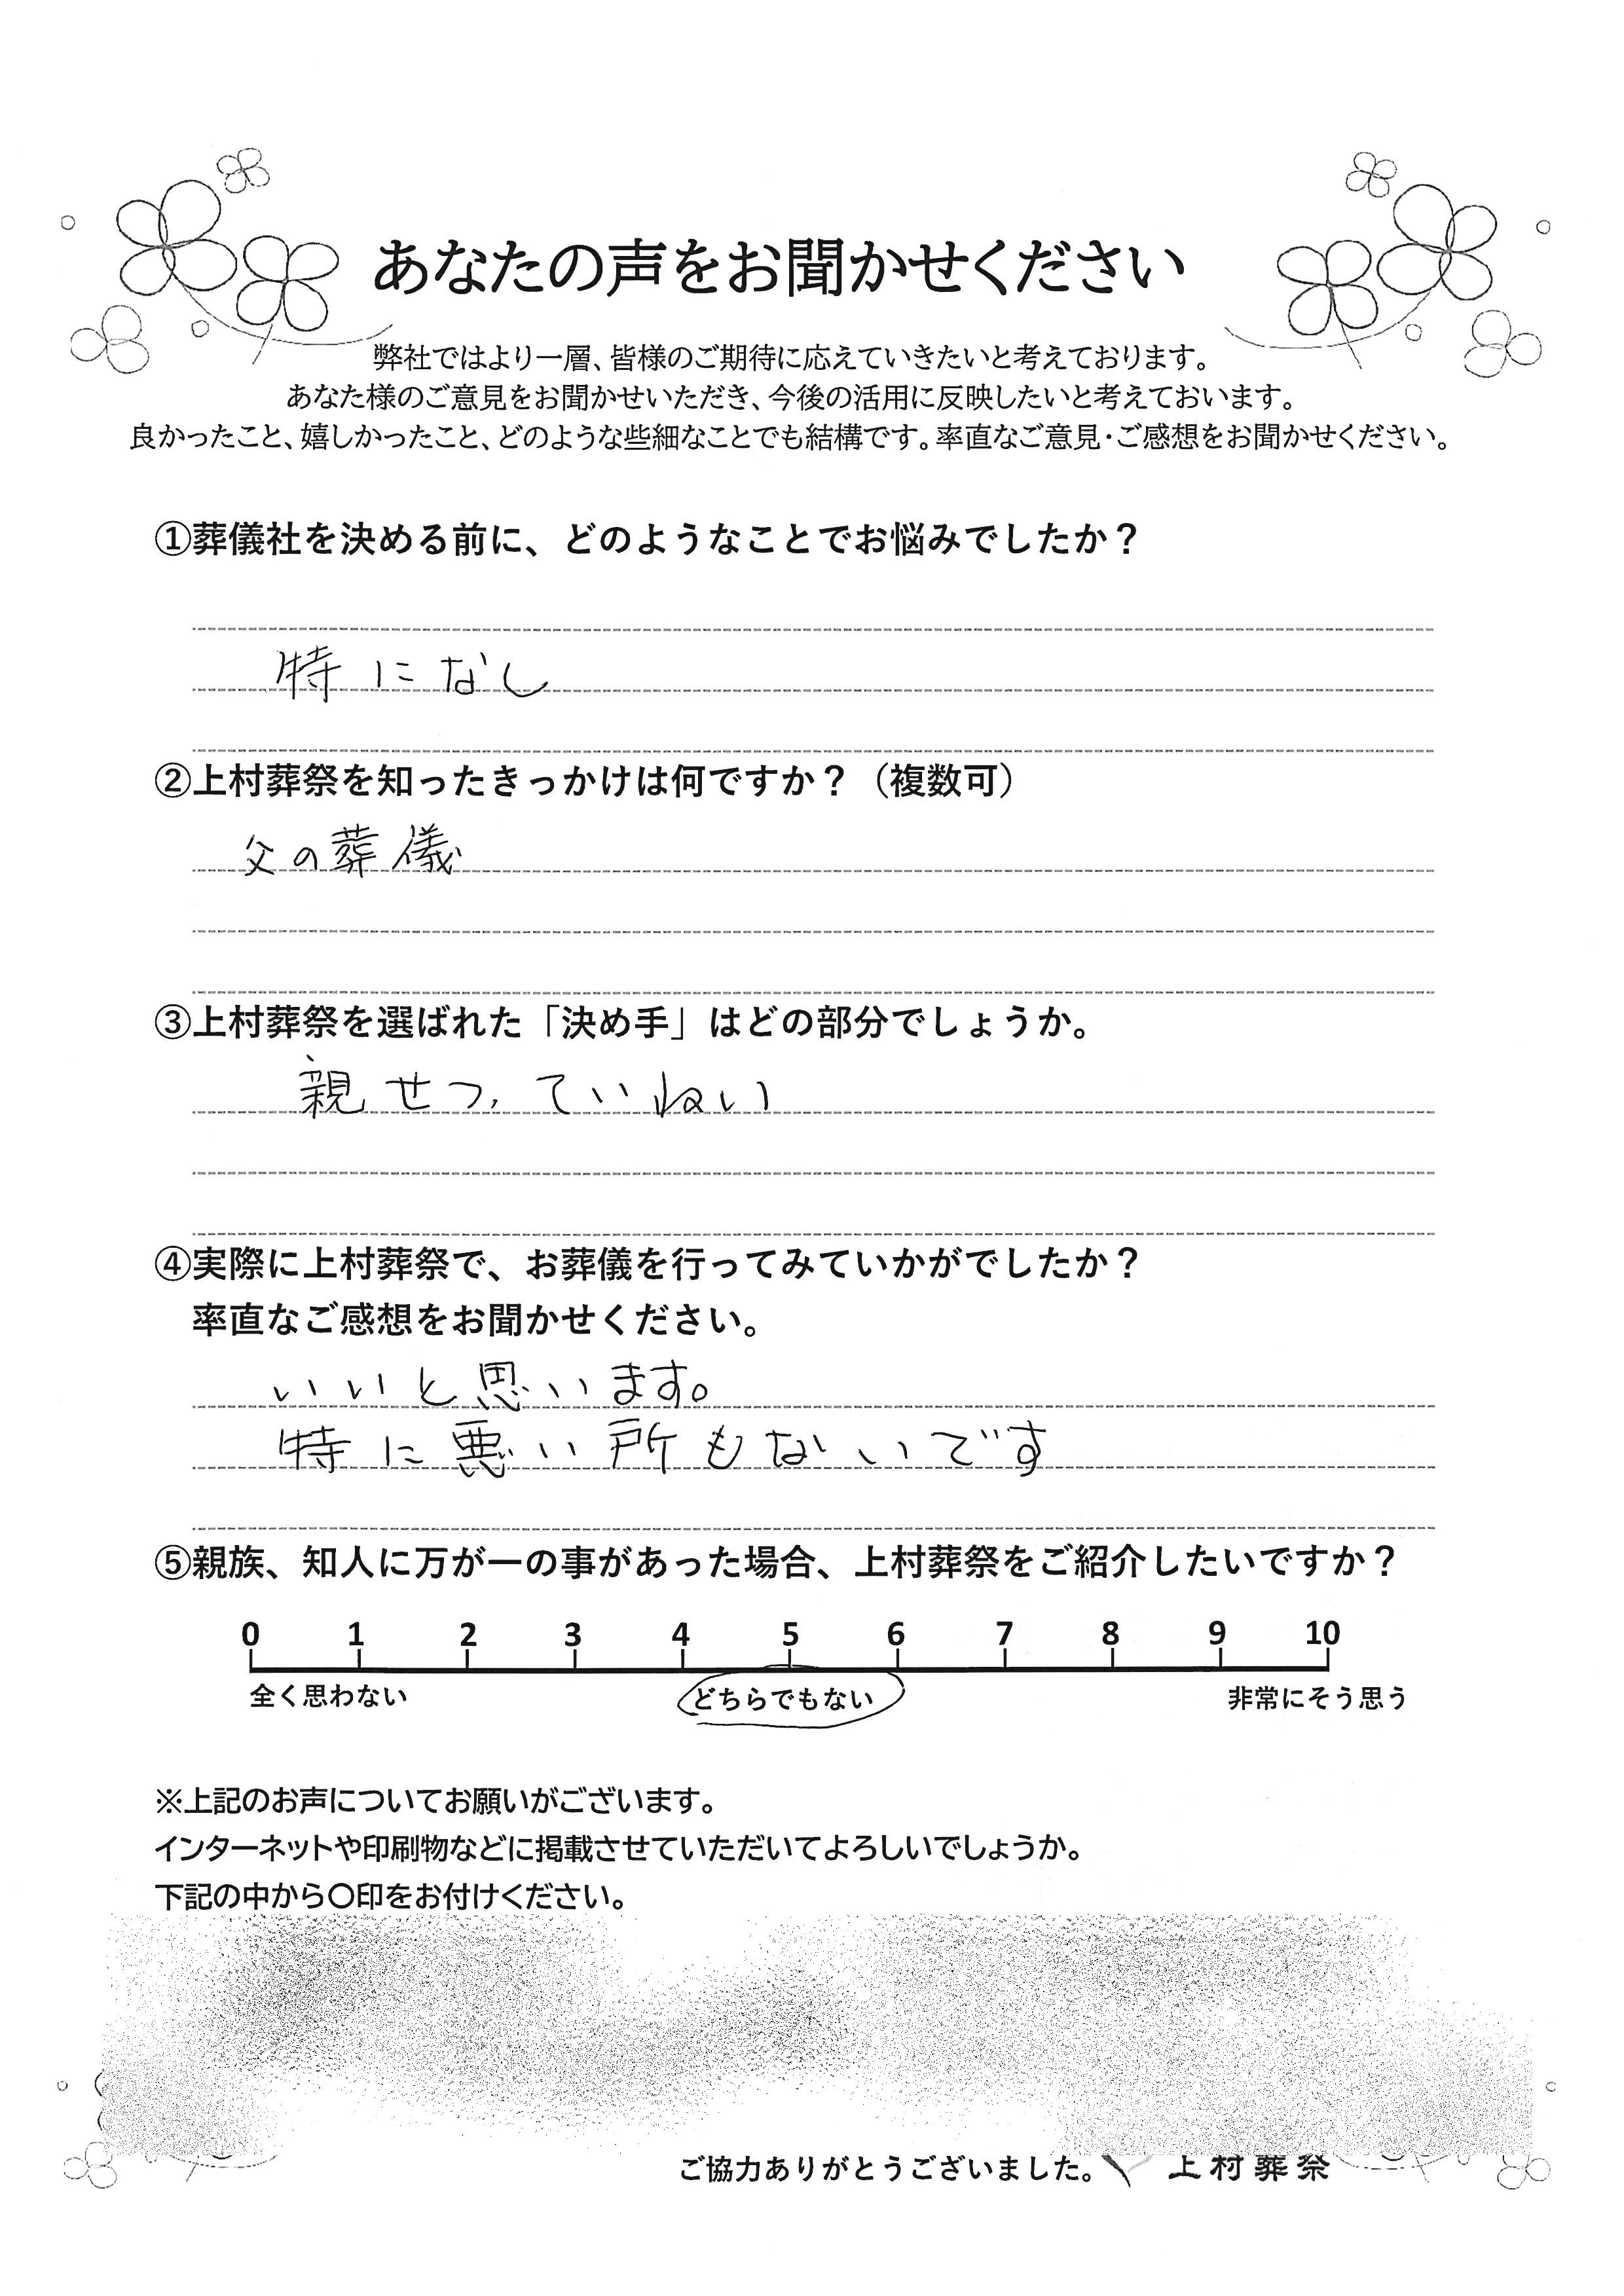 あなたの声をお聞かせください
弊社ではより一層、皆様のご期待に応えていきたいと考えております。
あなた様のご意見をお聞かせいただき、今後の活用に反映したいと考えておいます。
良かったこと、嬉しかったこと、どのような些細なことでも結構です。率直なご意見・ご感想をお聞かせください。
①葬儀社を決める前に、どのようなことでお悩みでしたか？
特になし
②上村葬祭を知ったきっかけは何ですか？（複数可）
父の葬儀
③上村葬祭を選ばれた「決め手」はどの部分でしょうか。
親せつ、ていねい
④実際に上村葬祭で、お葬儀を行ってみていかがでしたか？
率直なご感想をお聞かせください。
いいと思います。
特に悪い所もないです
⑤親族、知人に万が一の事があった場合、上村葬祭をご紹介したいですか？
0 1 2 3 4 5 6 7 8 9 10
全く思わない どちらでもない 非常にそう思う
※上記のお声についてお願いがございます。
インターネットや印刷物などに掲載させていただいてよろしいでしょうか。
下記の中から〇印をお付けください。
ご協力ありがとうございました。 上村葬祭